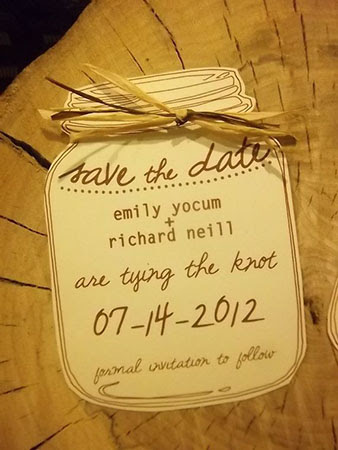 save the date
emily yocum
+
richard neill
are tying the knot
07-14-2012
formal invitation to follow